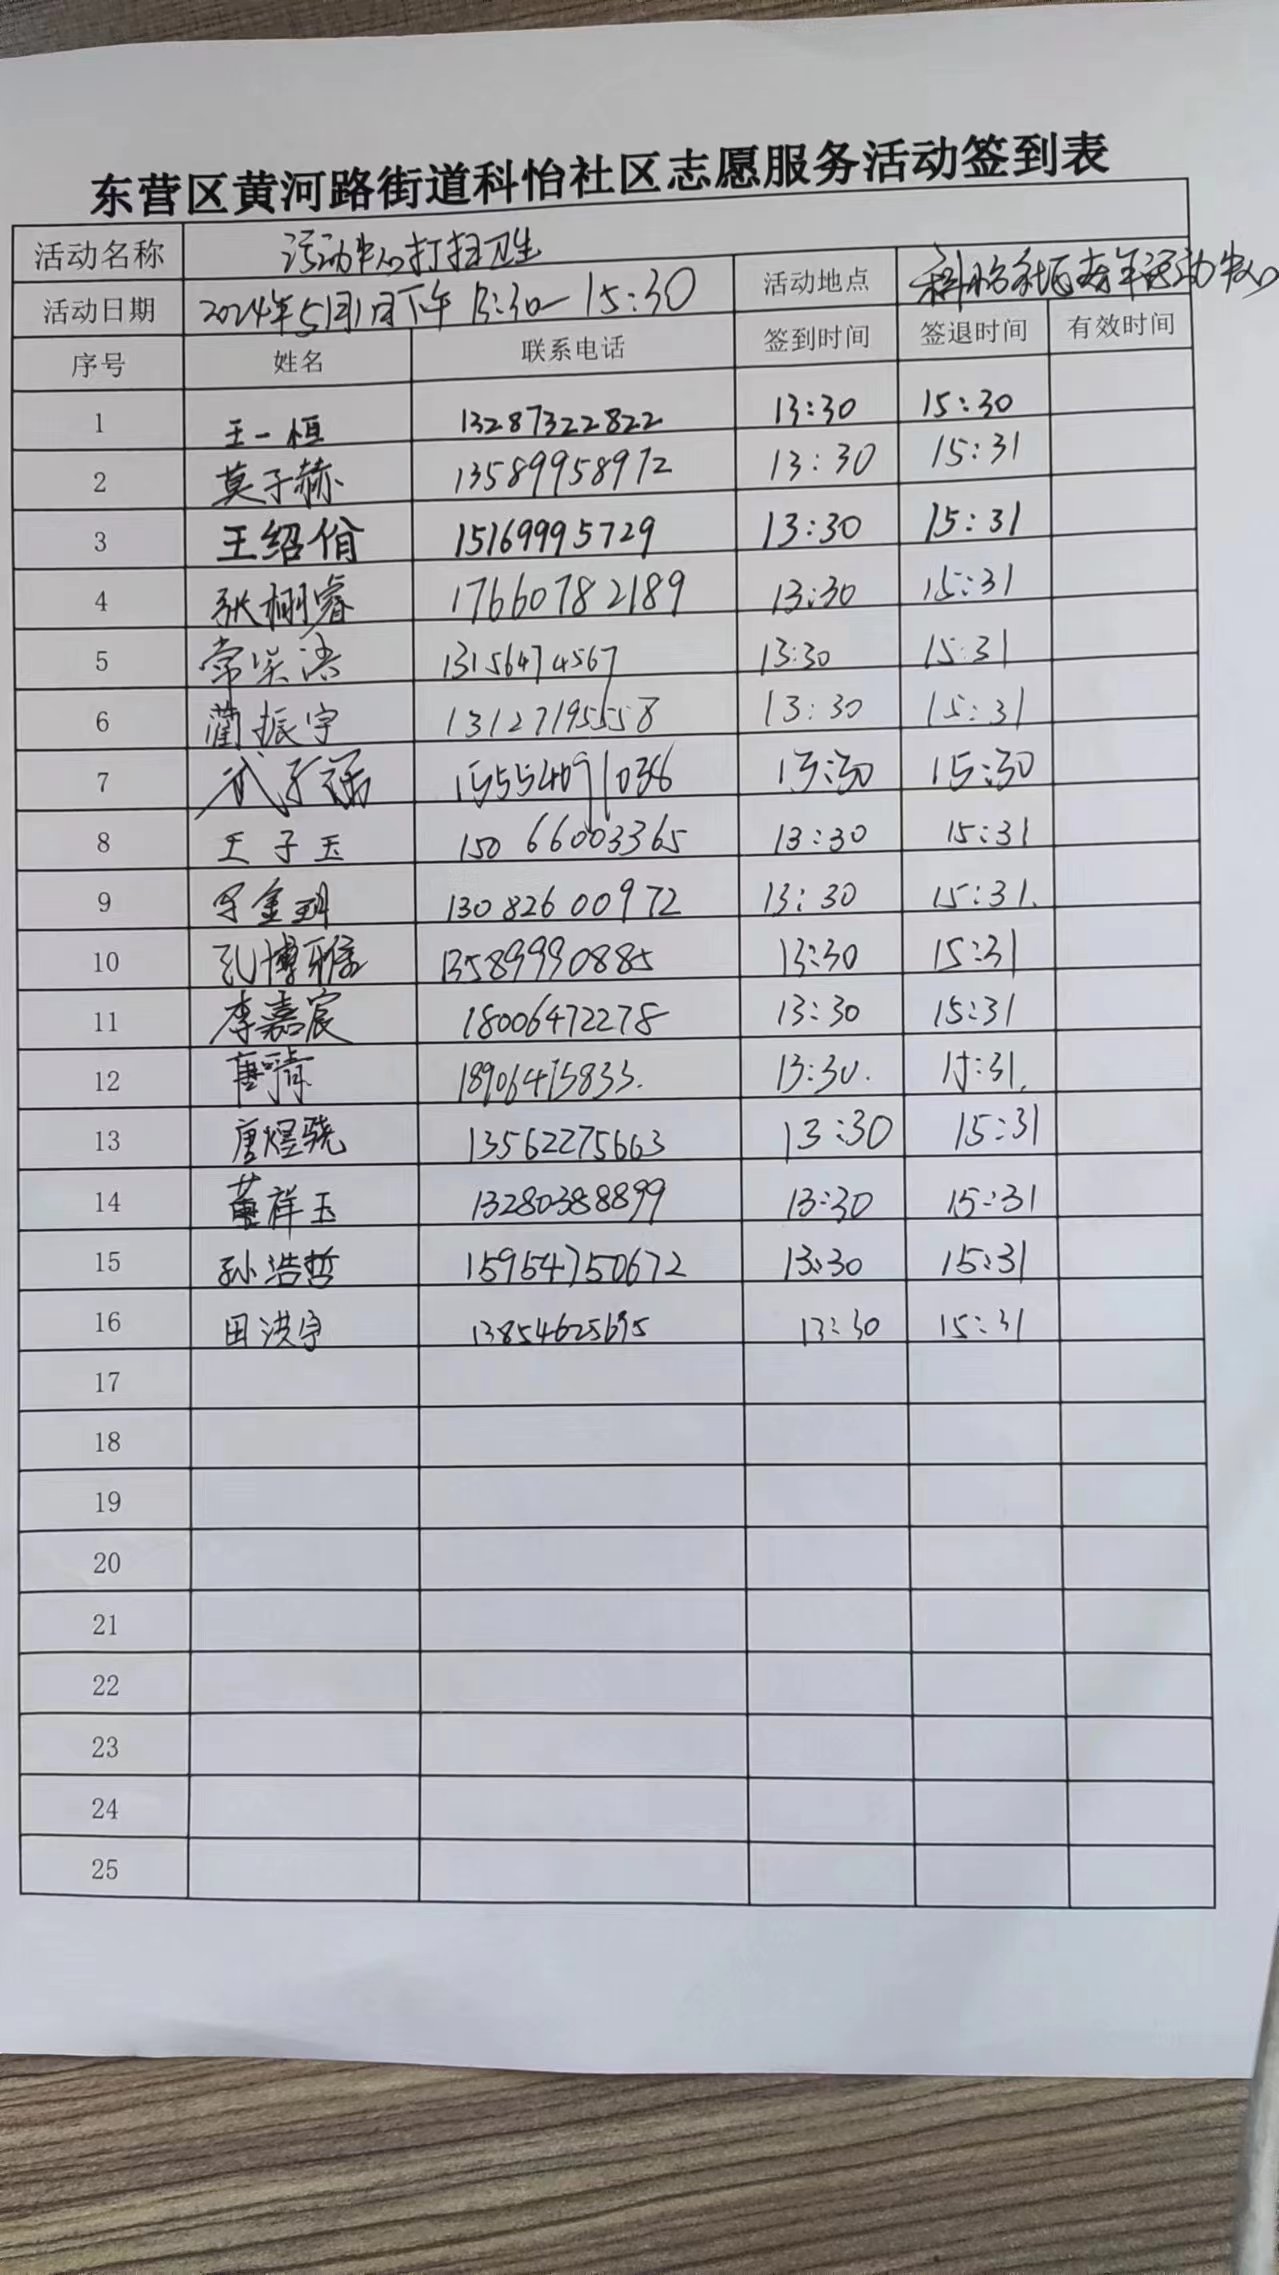 东营区黄河路街道科怡社区志愿服务活动签到表
活动名称 活动中心打扫卫生
活动日期 2024年5月1日下午 13:30-15:30 活动地点 科怡社区青年活动中心
序号 姓名 联系电话 签到时间 签退时间 有效时间
1 王一恒 13287322822 13:30 15:30
2 莫子赫 13589958972 13:30 15:31
3 王绍俏 15169995729 13:30 15:31
4 张栩睿 17660782189 13:30 15:31
5 常 浩 13156474567 13:30 15:31
6 蔺振宇 13127195558 13:30 15:31
7 武子 15554091036 13:30 15:30
8 王子玉 150 66003365 13:30 15:31
9 金 13082600972 13:30 15:31.
10 孔博雅 13589990885 13:30 15:31
11 李嘉宸 18006472278 13:30 15:31
12 唐 18906475833. 13:30. 15:31.
13 唐煜骁 13562275663 13:30 15:31
14 董祥玉 13280388899 13:30 15:31
15 孙浩哲 159547150672 13:30 15:31
16 田洪宇 13854625695 13:30 15:31
17
18
19
20
21
22
23
24
25